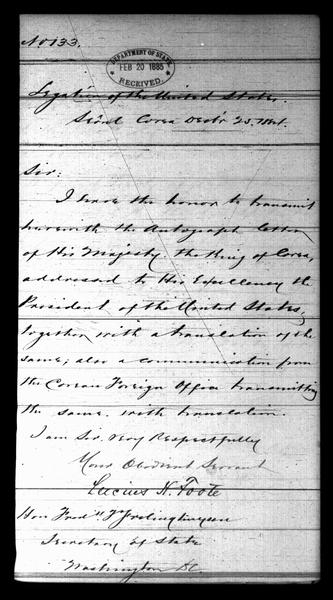 No 133.
DEPARTMENT OF STATE
FEB 20 1885
RECEIVED
Legation of the United States.
Seoul Corea Decbr 23, 1884.
Sir:
I have the honor to transmit
herewith the Autograph letter
of His Majesty the King of Corea,
addressed to His Excellency the
President of the United States,
together with a translation of the
same; also a communication from
the Corean Foreign Office transmitting
the same with translation.
I am Sir Very Respectfully
Your Obedient Servant
Lucius H. Foote
Hon Fredk T Frelinghuysen
Secretary of State
Washington DC.